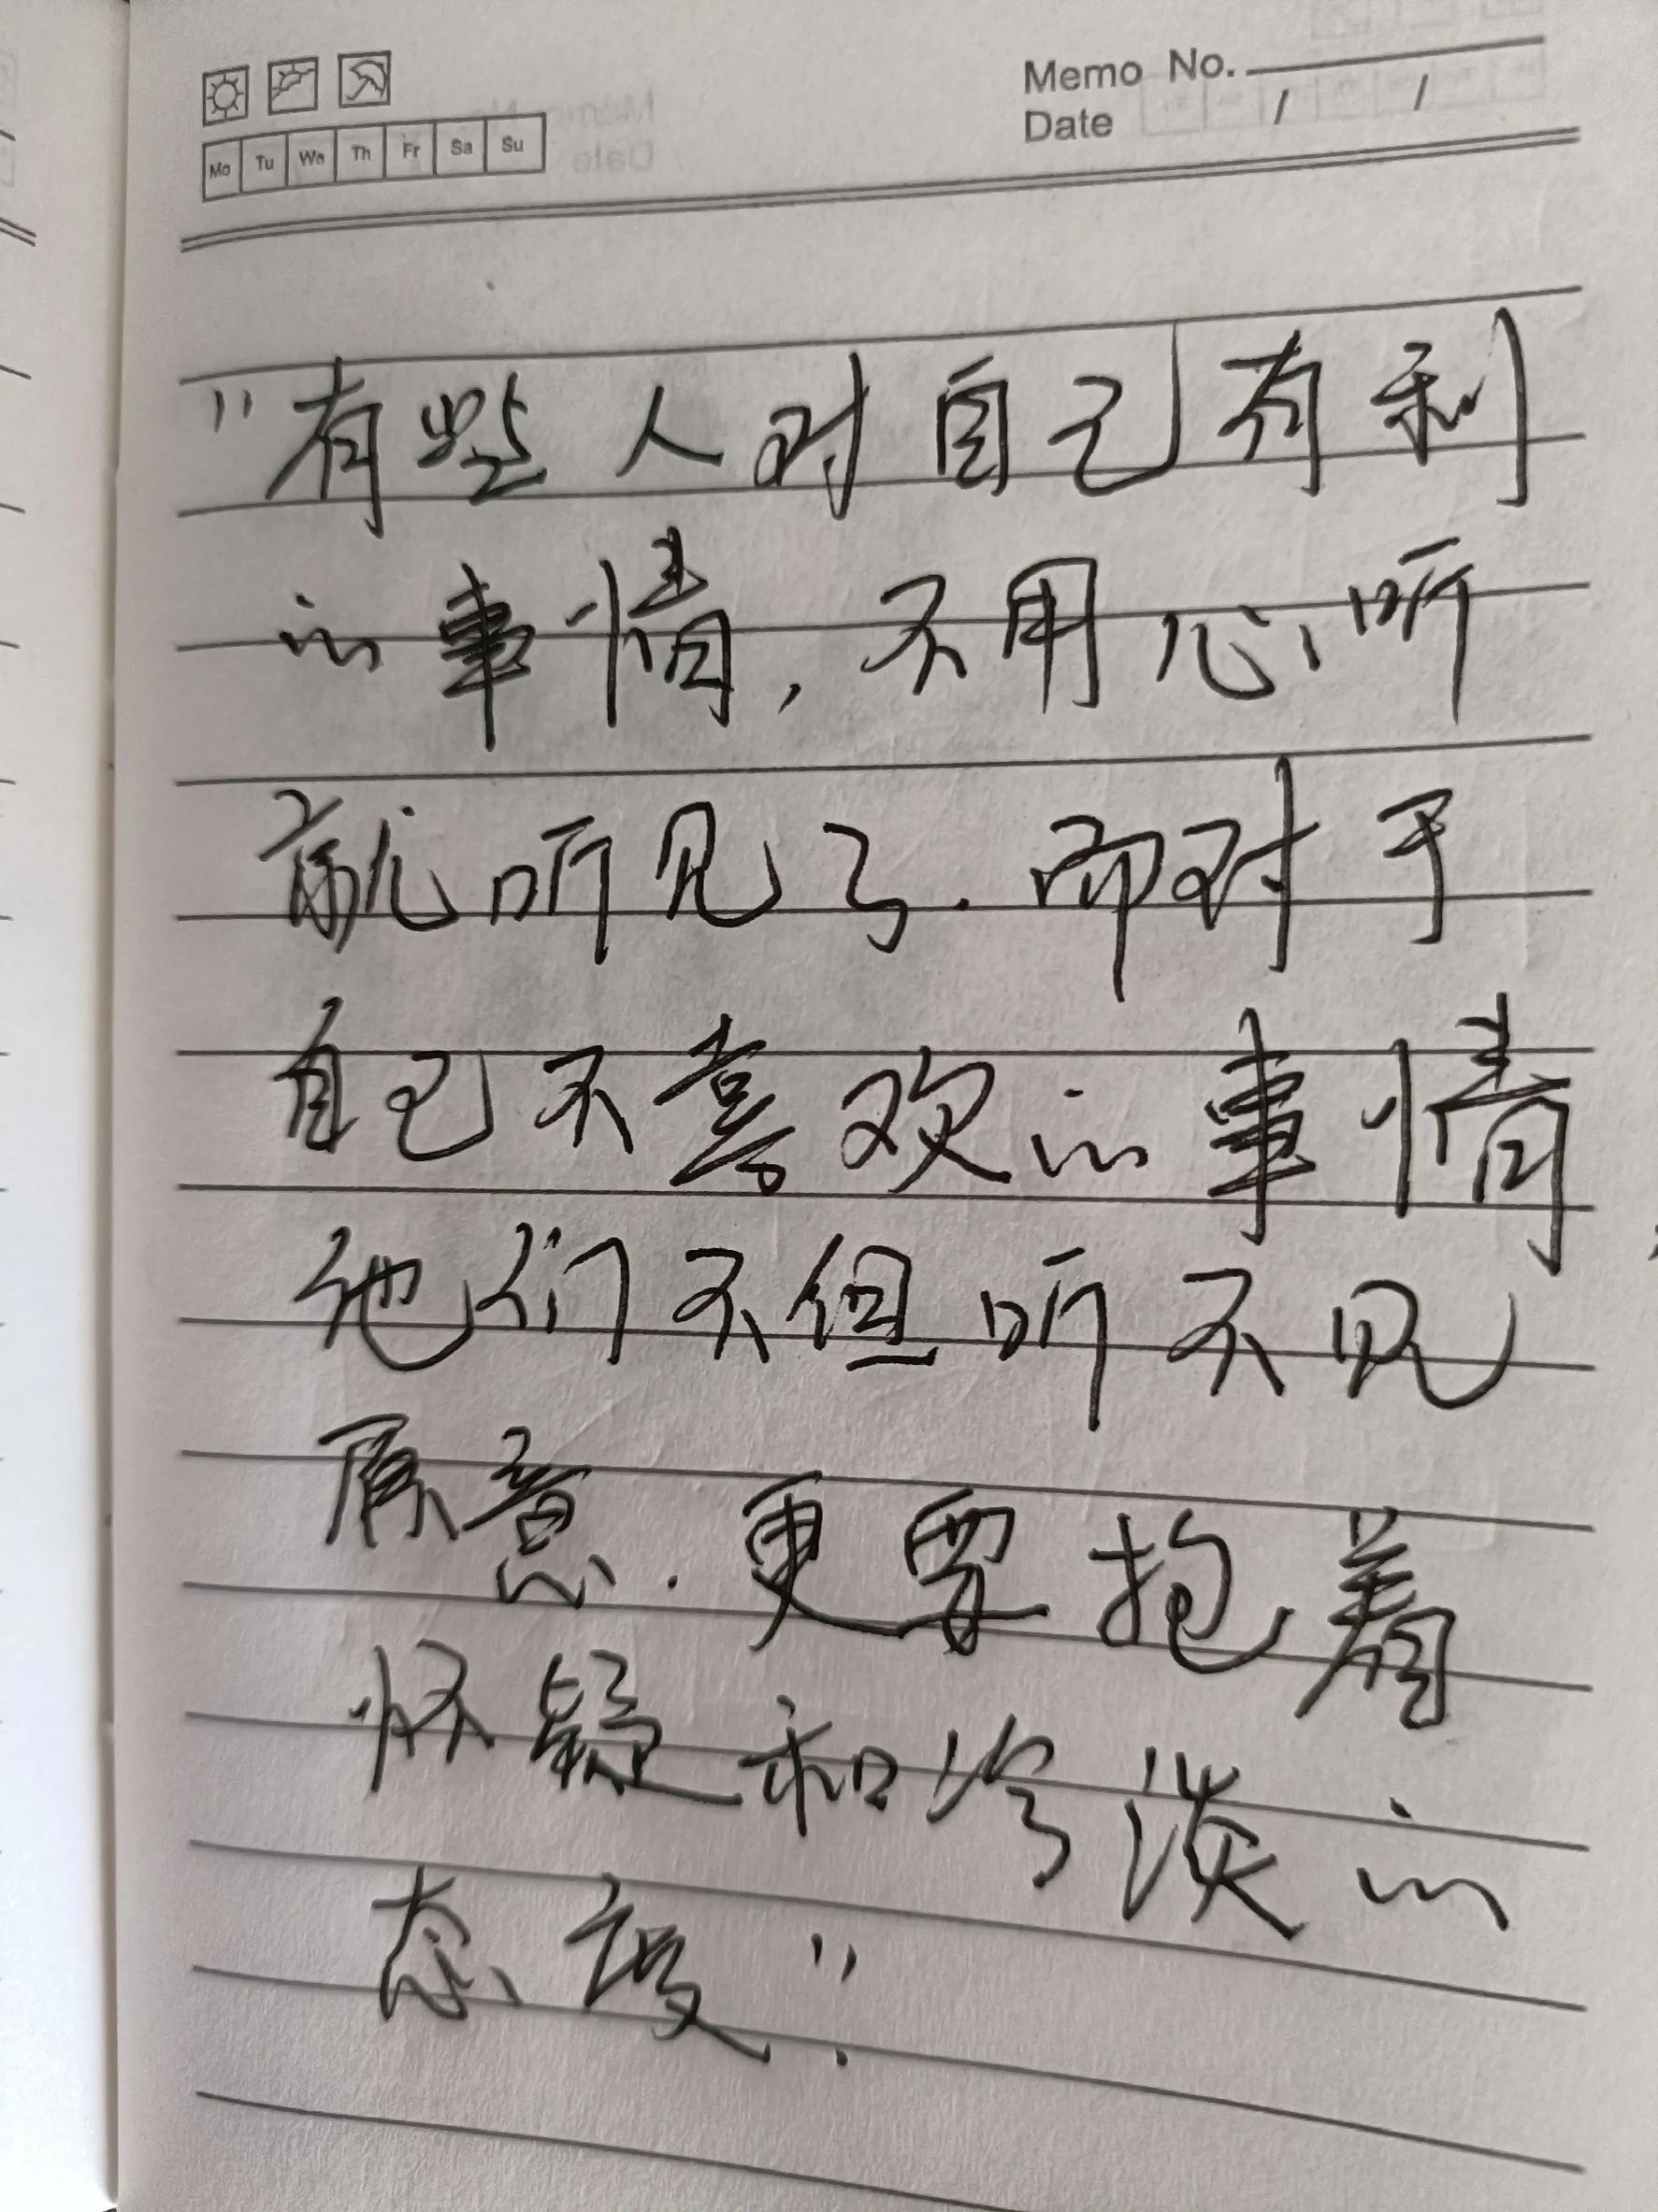 Memo No.
Date / /
Mo Tu We Th Fr Sa Su
"有些人对自己有利
的事情，不用心听
就听见了．而对于
自己不喜欢的事情
他们不但听不见
原意．更要抱着
怀疑和冷淡的
态度"．